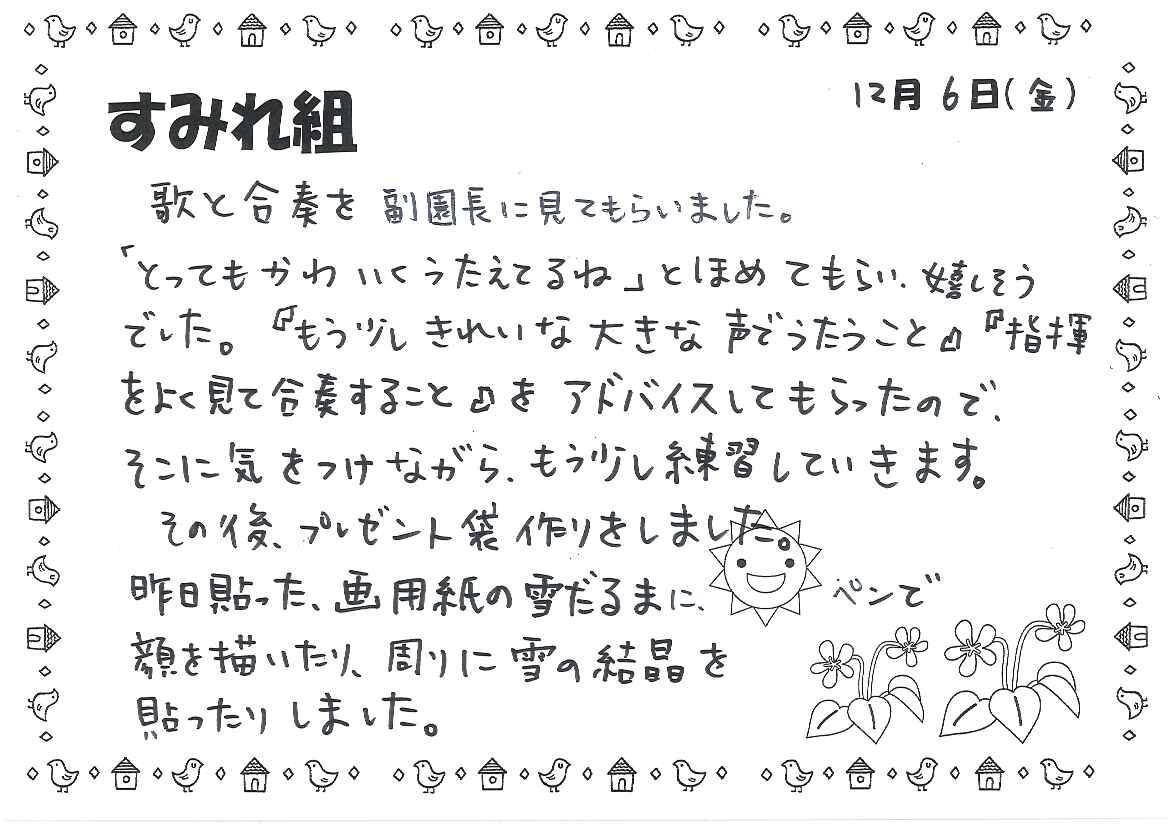 12月6日(金)
すみれ組
歌と合奏を副園長に見てもらいました。
「とってもかわいくうたえてるね」とほめてもらい、嬉しそう
でした。『もう少しきれいな大きな声でうたうこと』『指揮
をよく見て合奏すること』をアドバイスしてもらったので、
そこに気をつけながら、もう少し練習していきます。
その後、プレゼント袋作りをしました。
昨日貼った、画用紙の雪だるまに、ペンで
顔を描いたり、周りに雪の結晶を
貼ったりしました。